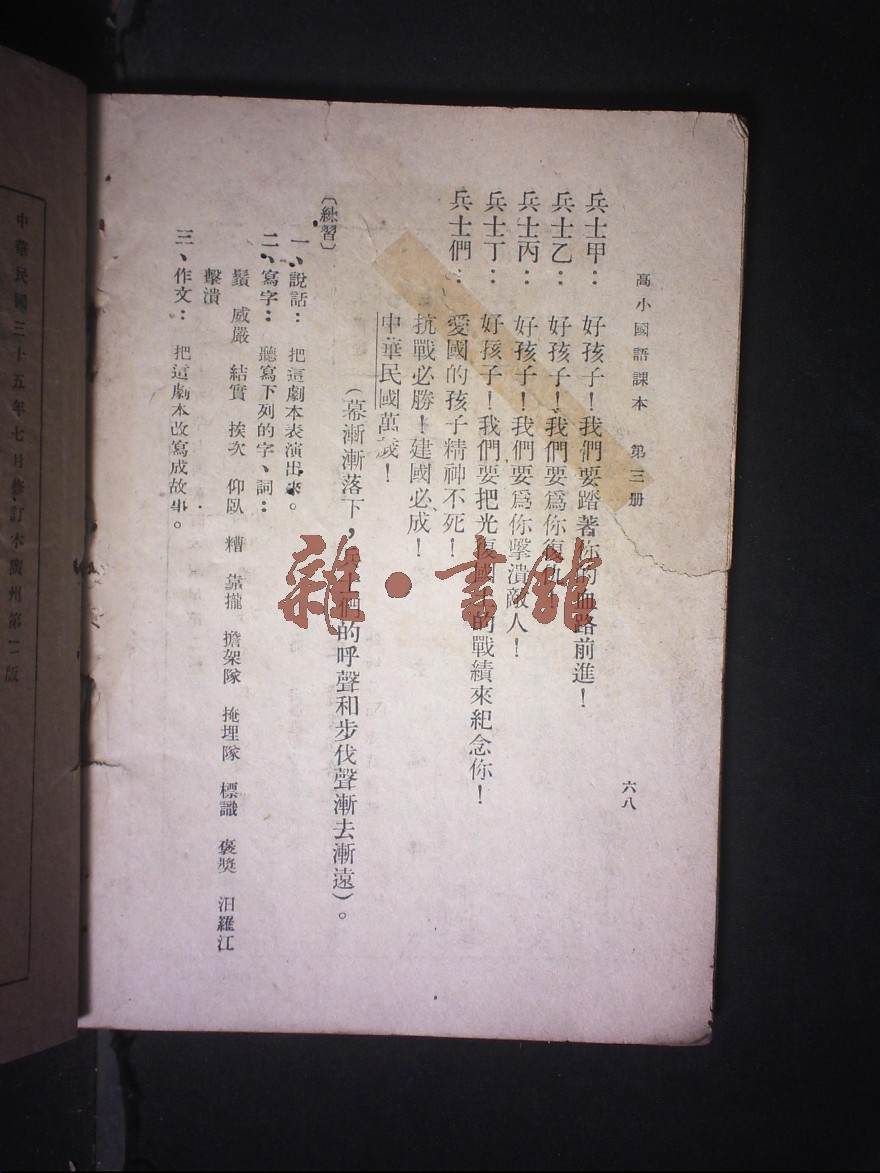 高小國語課本 第三册
六八
兵士甲： 好孩子！我們要踏著你的血路前進！
兵士乙： 好孩子！我們要爲你復仇！
兵士丙： 好孩子！我們要爲你擊潰敵人！
兵士丁： 好孩子！我們要把光復國土的戰績來紀念你！
兵士們： 愛國的孩子精神不死！
抗戰必勝！建國必成！
中華民國萬歲！
（幕漸漸落下，兵士們的呼聲和步伐聲漸去漸遠）。
〔練習〕
一、說話： 把這劇本表演出來。
二、寫字： 聽寫下列的字、詞：
鬚 威嚴 結實 挨次 仰臥 糟 靠攏 擔架隊 掩埋隊 標識 褒獎 汨羅江
擊潰
三、作文： 把這劇本改寫成故事。
中華民國三十五年七月修訂本廣州第二版
雜·書館